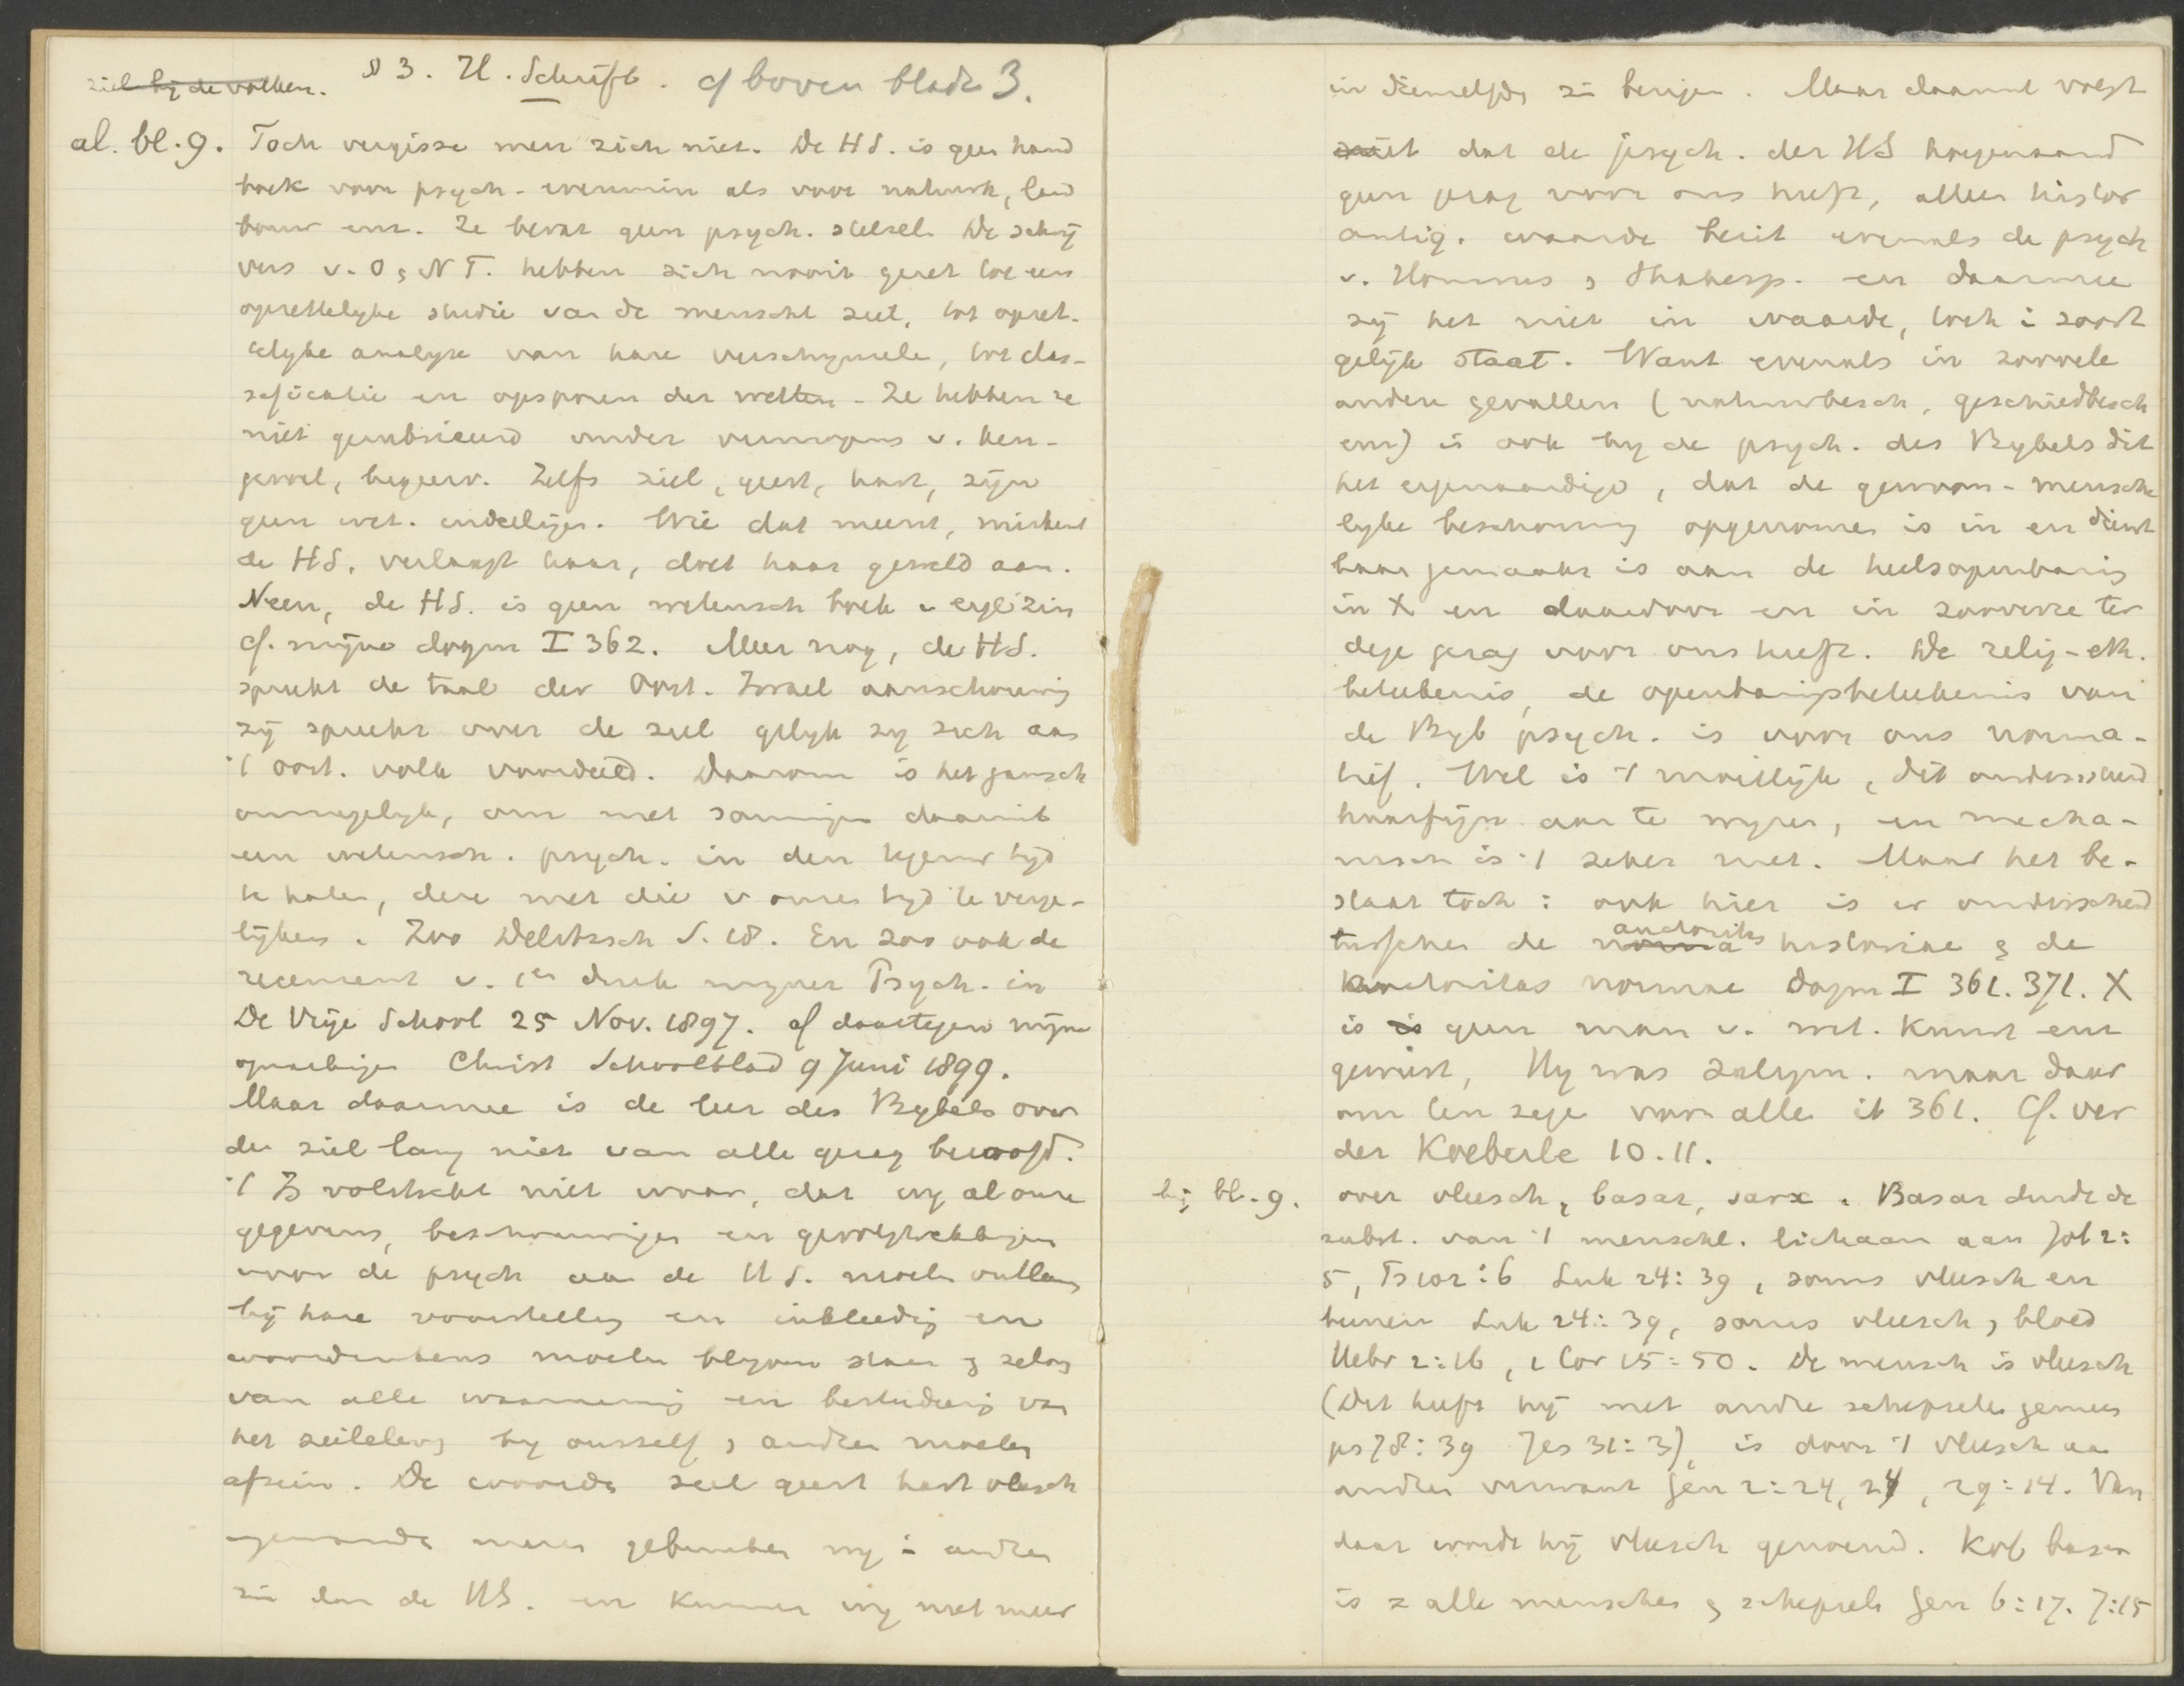 ziel by de volken. § 3. H. Schrift. cf boven bladz 3.
al. bl. 9. Toch vergisse men zich niet. De HS. is geen hand
boek voor psych. evenmin als voor natuurk, land
bouw enz. Ze bevat geen psych. stelsel. De schrij
vers v. O & N T. hebben zich nooit gezet tot een
opzettelyke studie van de menschl ziel, tot opzet-
telyke analyse van hare verschynselen, tot clas-
sificatie en opsporen der wetten - Ze hebben ze
niet gerubriceerd onder vermogens v. ken-
gevoel, begeerv. Zelfs ziel, geest, hart, zijn
geen wet. indeelingen. Wie dat meent, miskent
de HS. verlaagt haar, doet haar geweld aan.
Neen, de HS. is geen wetensch boek in eigl zin
cf. mijne dogm I 362. Meer nog, de HS.
spreekt de taal der Oost. Israel aanschouwing
zij spreekt over de ziel gelyk zy zich aan
't oost. volk voordeed. Daarom is het gansch
onmogelyk, om met sommigen daaruit
een wetensch. psych. in den tegenw tyd
te halen, deze met die v onzen tyd te verge-
lijken. Zoo Delitzsch S. 18. En zoo ook de
recensent v. 1en druk mijner Psych. in
De Vrije School 25 Nov. 1897. cf daartegen mijne
opmerkingen Christ Schoolblad 9 Juni 1899.
Maar daarmee is de leer des Bybels over
de ziel lang niet van alle gezag beroofd.
't Is volstrekt niet waar, dat wy al onze
gegevens, beschouwingen en gevolgtrekkingen
voor de psych aan de HS. moeten ontleenen
bij hare voorstelling en inkleeding en
woordenkeus moeten blyven staan &
van alle waarneming en bestudeering van
het zieleleven by onszelf & anderen moeten
afzien. De woorden ziel geest hart vleesch
gebruiken wy in anderen
zin dan de HS. en kunnen wy niet meer
in denzelfden zin bezigen. Maar daaruit volgt
niet dat de psych. der HS hoegenaamd
geen gezag voor ons heeft, alleen histor
antiq. waarde bezit evenals de psych
v. Homerus & Shakesp. en daarmee
zij het niet in waarde, toch i soort
gelijk staat. Want evenals in zoovele
andere gevallen (natuurbesch, geschiedbesch
enz) is ook by de psych. des Bybels dit
het eigenaardige, dat de gewoon-mensche
lyke beschouwing opgenomen is in en dienst
baar gemaakt is aan de heilsopenbaring
in X en daardoor en in zooverre ter
dege gezag voor ons heeft. De relig-eth.
beteekenis, de openbaringsbeteekenis van
de Byb psych. is voor ons norma-
tief. Wel is 't moeilijk, dit onderscheid
haarfijn aan te wyzen, en mecha-
nisch is 't zeker niet. Maar het be-
staat toch: ook hier is er onderscheid
tusschen de norma auctoritas historiae & de
auctoritas normae Dogm I 361. 371. X
is geen man v. wet. kunst enz
geweest, Hy was zaligm. maar daar
om ten zege voor allen ib 361. Cf. ver
der Koeberle 10. 11.
bij bl. 9. over vleesch, basar, sarx. Basar duidt de
subst. van 't menschl. lichaam aan Job 2:
5, Ps 102: 6 Luk 24: 39, soms vleesch en
beenen Luk 24: 39, soms vleesch & bloed
Hebr 2: 16, 1 Cor 15: 50. De mensch is vleesch
(Dit heeft hij met andre schepselen gemeen
ps 78: 39 Jes 31: 3), is door 't vleesch aan
andren verwant Gen 2: 24, 29: 14. Van
daar wordt hij vleesch genoemd. Kol basar
is = alle menschen & schepsels Gen 6: 17. 7: 15